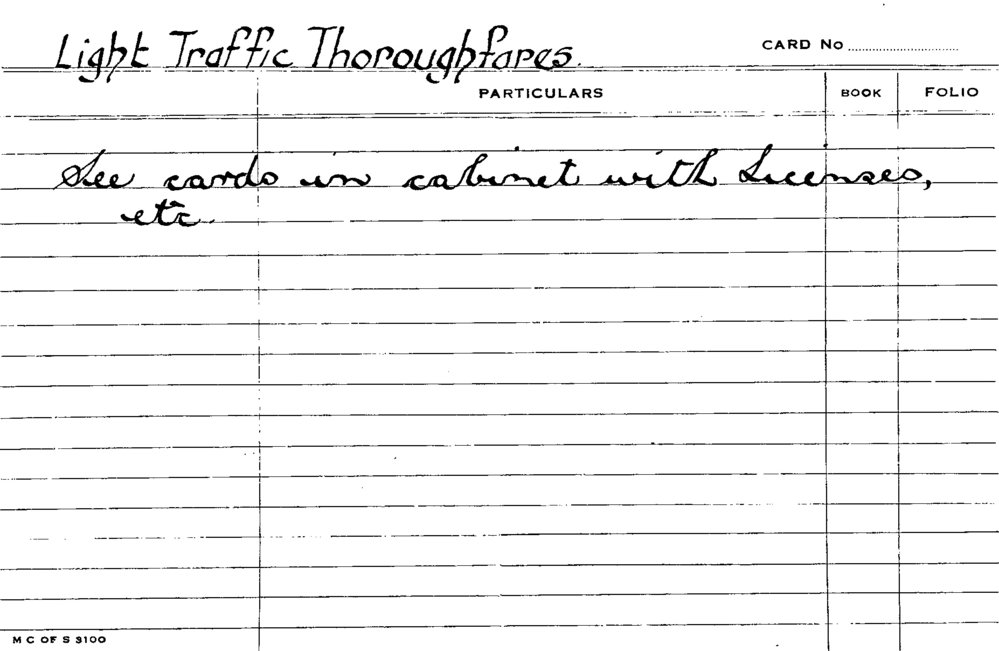 Light Traffic Thoroughfares.
CARD No
PARTICULARS BOOK FOLIO
See cards in cabinet with Licenses,
etc.
M C OF S 3100